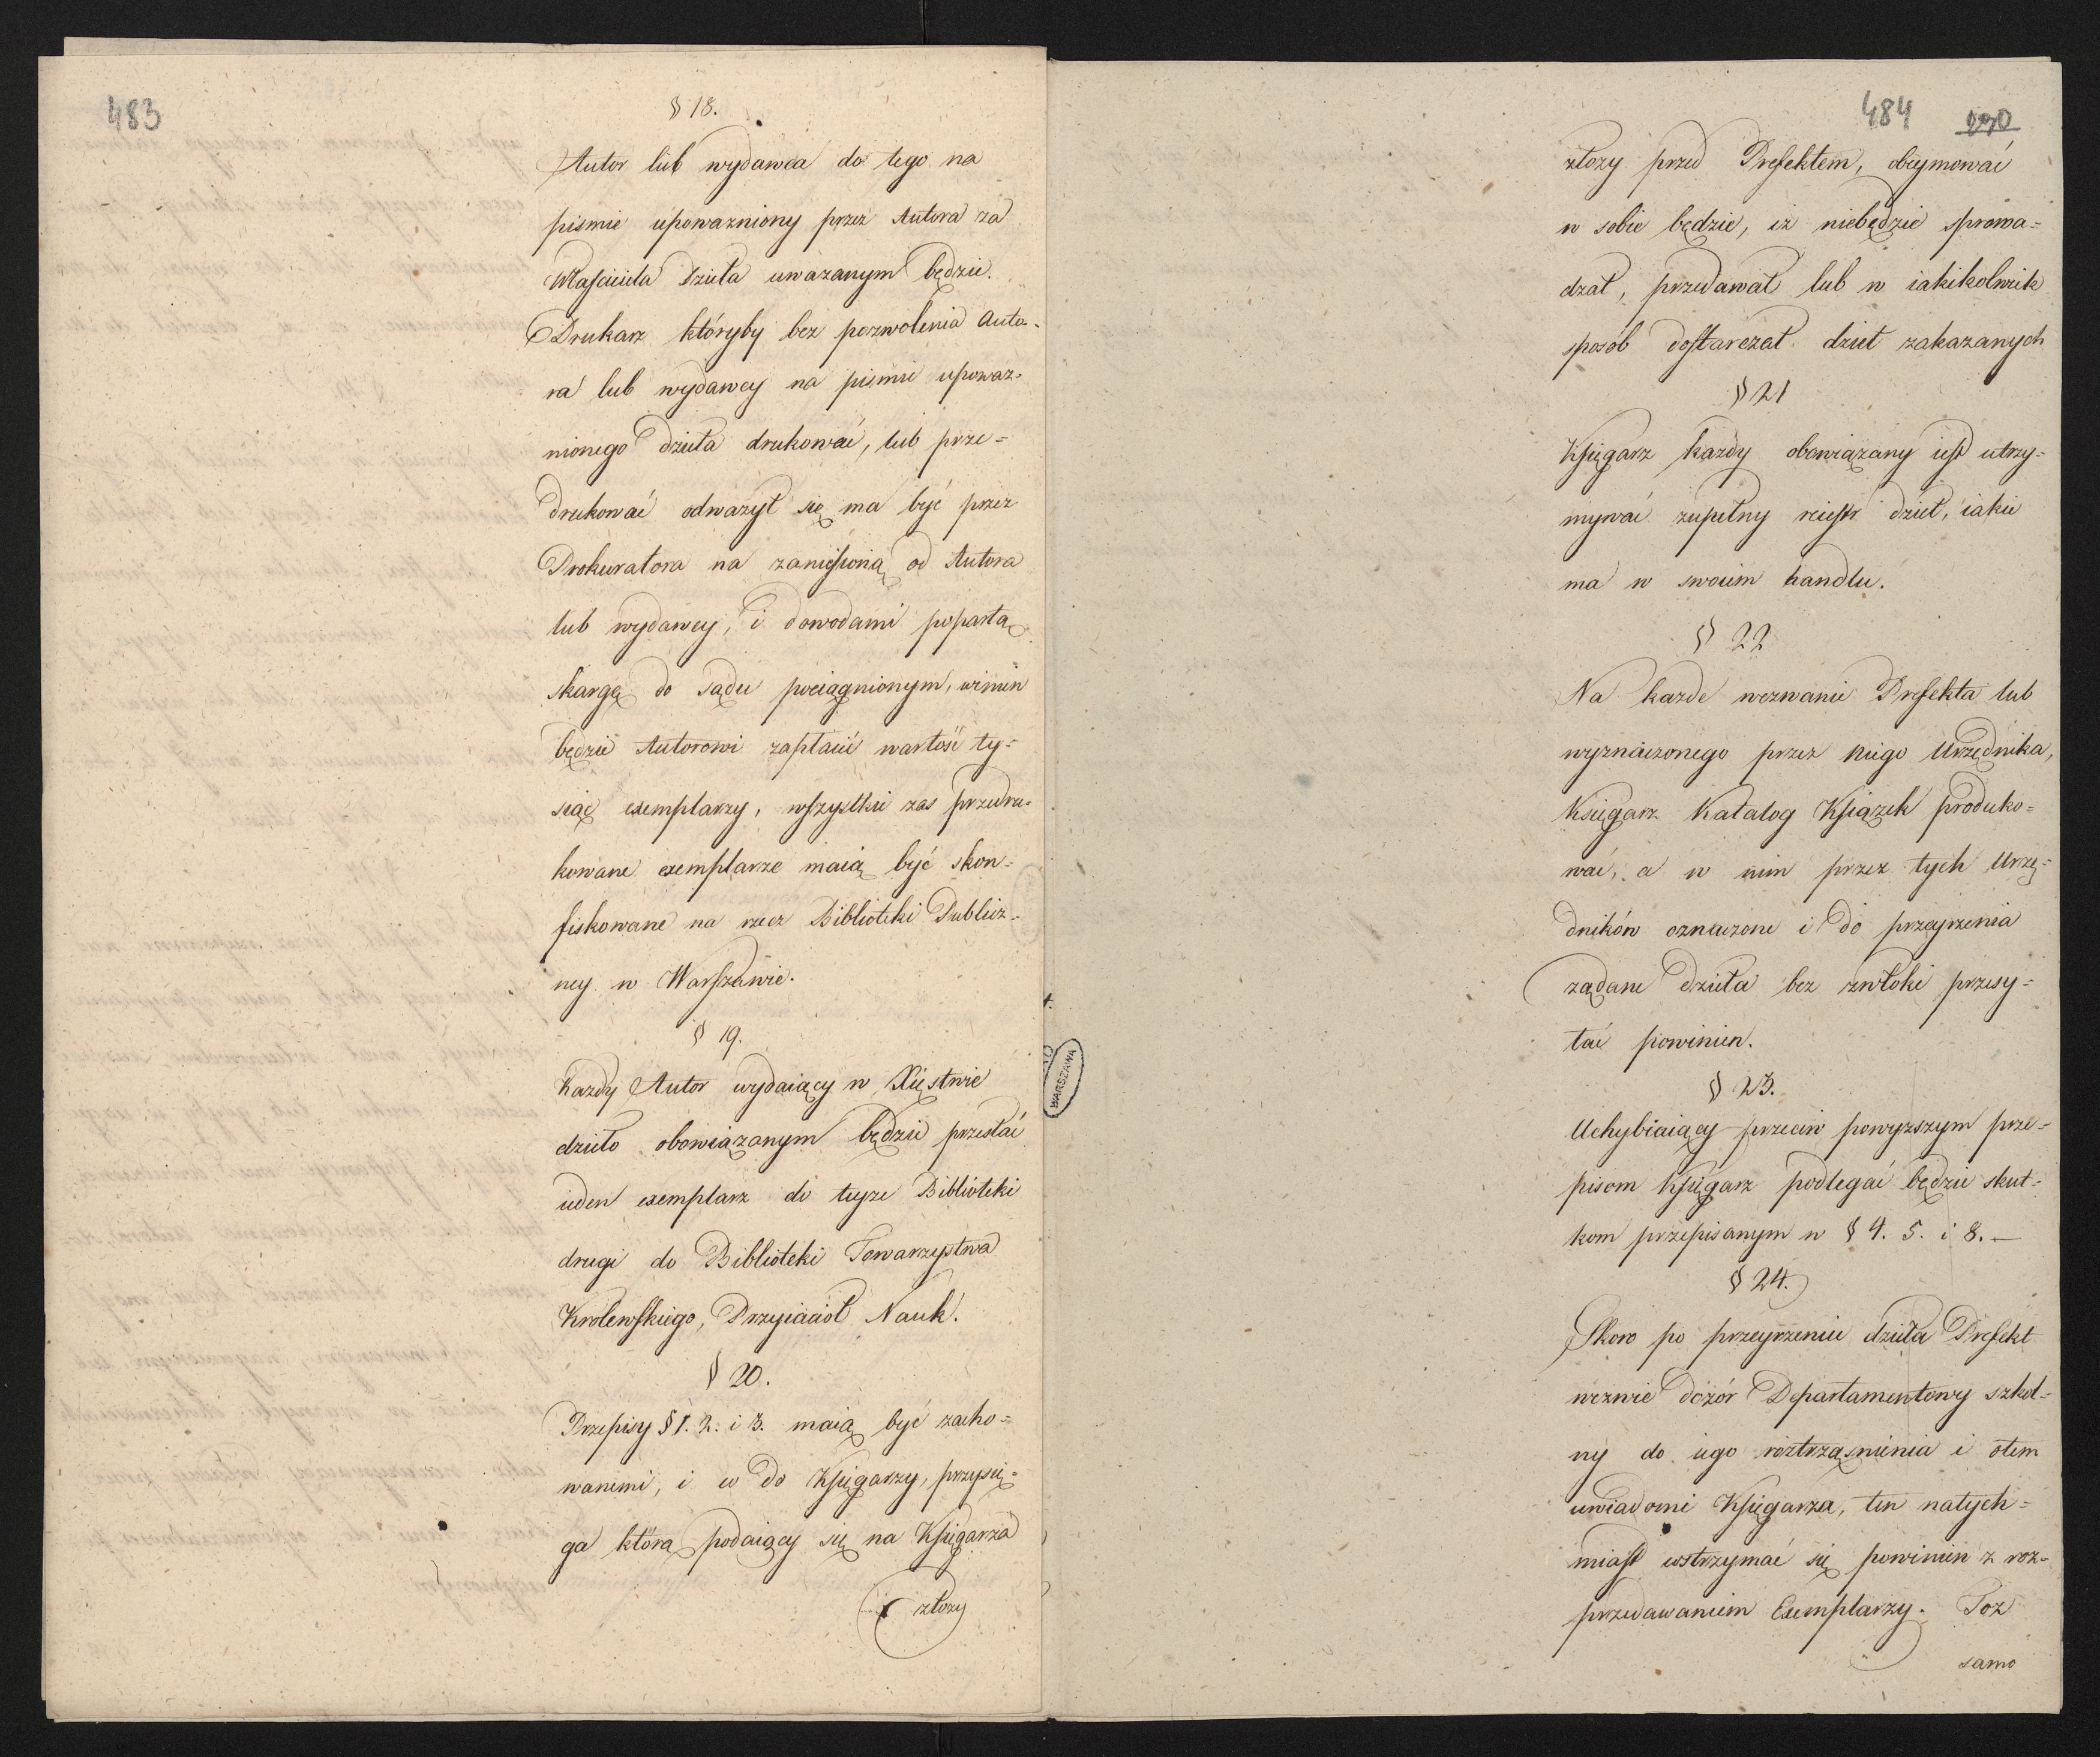 483
§ 18.
Autor lub wydawca do tego na
pismie upowazniony przez Autora za
Właściciela dzieła uwazanym będzie.
Drukarz któryby bez pozwolenia Auto-
ra lub wydawcy na pismie upowaz=
nionego dzieła drukować, lub prze=
drukować odwazył się ma być przez
Prokuratora na zaniesioną od Autora
lub wydawcy, i dowodami popartą
skargę do sądu pociągnionym, winien
będzie Autorowi zapłacić wartość ty=
siąc exemplarzy, wszystkie zas przedru-
kowane exemplarze maią być skon=
fiskowane na rzecz Biblioteki Publicz=
ney w Warszawie.
§ 19.
Kazdy Autor wydaiący w Xięstwie
dzieło obowiązanym będzie przesłać
ieden exemplarz do teyze Biblioteki
drugi do Biblioteki Towarzystwa
Krolewskiego, Przyiaciol Nauk.
§ 20.
Przepisy § 1. 2. i 3. maią być zacho=
wanemi, i co do Księgarzy, przysię=
ga którą podaiący się na Księgarza
złozy
484
złozy przed Prefektem, obeymować
w sobie będzie, iz niebędzie sprowa=
dzał, przedawał lub w iakikolwiek
sposób dostarczał dzieł zakazanych
§ 21
Księgarz kazdy obowiązany iest utrzy=
mywać zupełny reiestr dzieł, iakie
ma w swoiem handlu.
§ 22
Na kazde wezwanie Prefekta lub
wyznaczonego przez niego Urzędnika,
Księgarz Katalog Książek produko=
wać, a w nim przez tych Urzę=
dników oznaczone i do przeyrzenia
ządane dzieła bez zwłoki przesy=
łać powinien.
§ 23.
Uchybiaiący przeciw powyzszym prze=
pisom Księgarz podlegać będzie skut=
kom przepisanym w § 4. 5. i 8. —
§ 24.
Skoro po przeyrzeniu dzieła Prefekt
wezwie dozór Departamentowy szkol=
ny do iego roztrząsnienia i otem
uwiadomi Księgarza, ten natych=
miast wstrzymać się powinien z roz=
przedawaniem Exemplarzy. Toz
samo
WARSZAWA